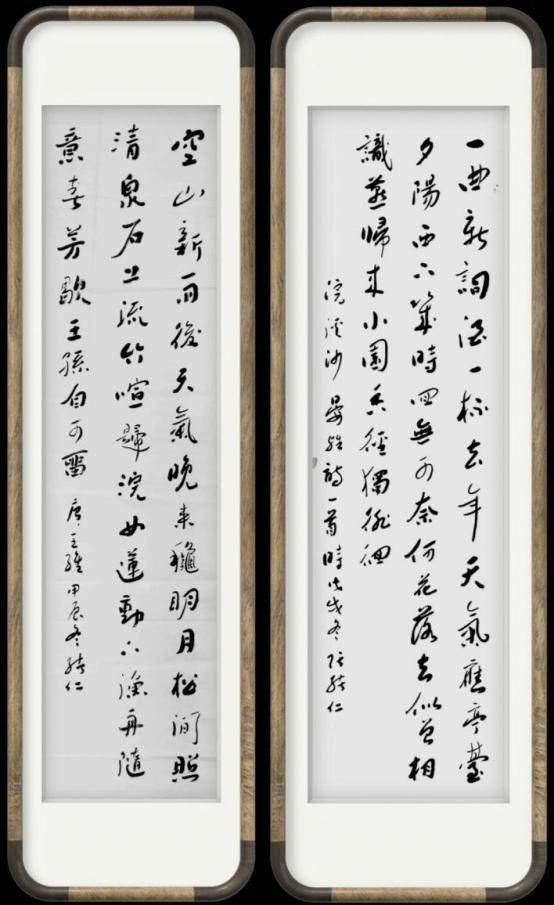 一曲新詞酒一杯去年天氣舊亭臺
夕陽西下幾時回無可奈何花落去似曾相
識燕歸來小園香徑獨徘徊
浣溪沙 晏殊詩一首 時戊戌冬 张继仁
空山新雨後天氣晚來穐明月松澗照
清泉石上流竹喧歸浣女蓮動下漁舟隨
意春芳歇王孫自可畱 唐 王維 甲辰冬 继仁